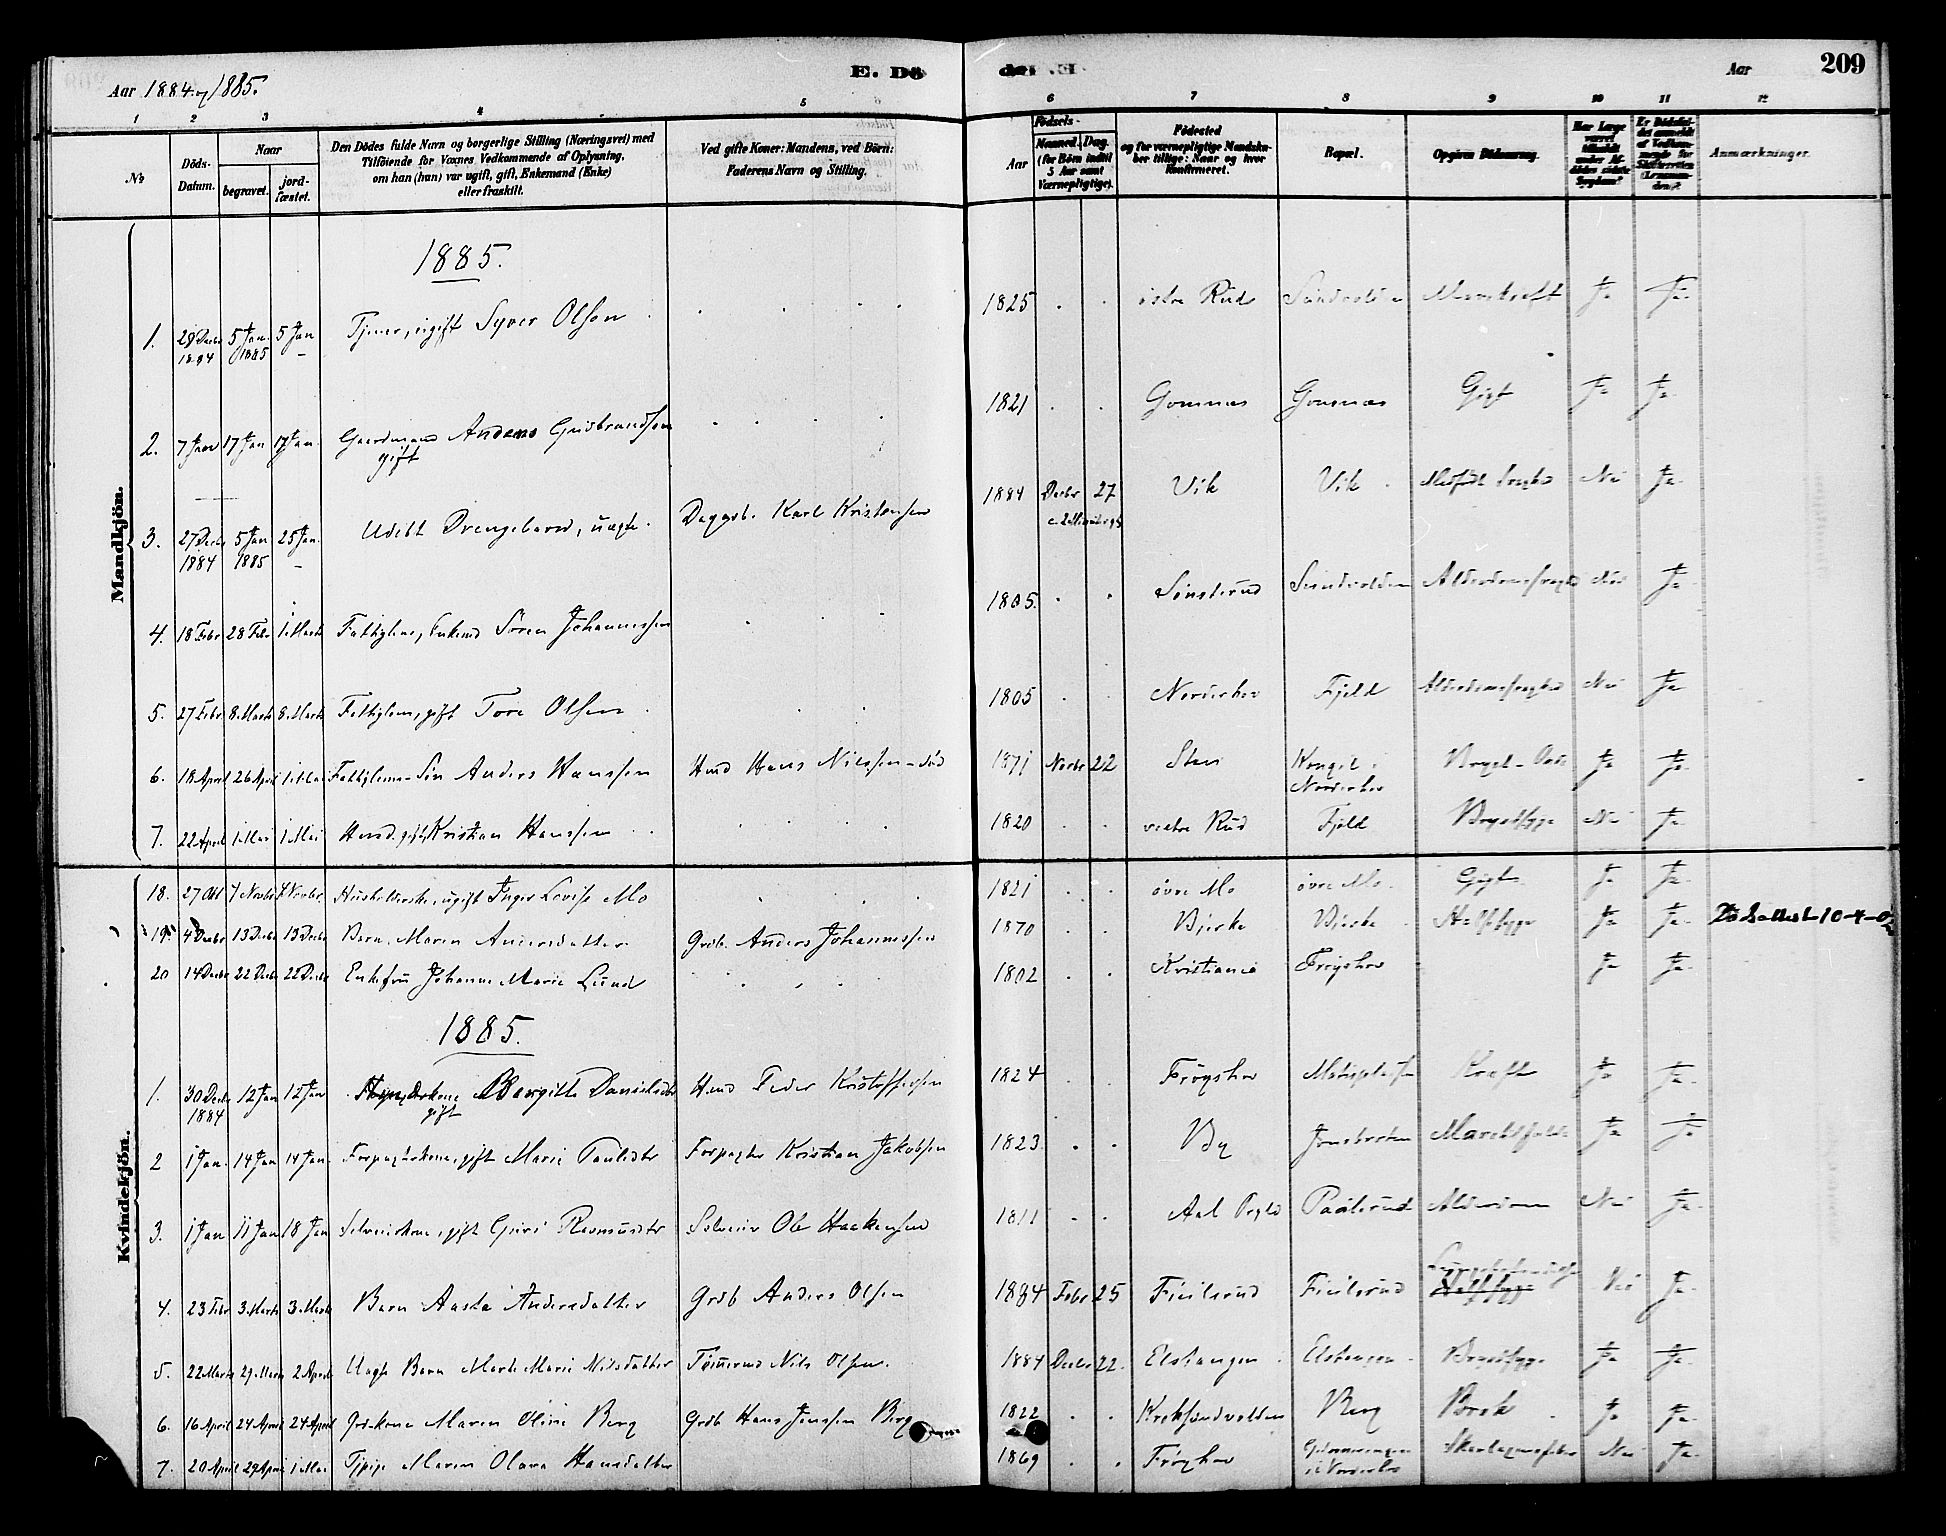 Aar 1884 og 1885.
E. Dö
de. E.
Aar
209
1 2 3 4 5 6 7 8 9 10 11 12
№
Döds-Datum.
Naar
begravet.
jord-fæstet.
Den Dödes fulde Navn og borgerlige Stilling (Næringsvei) med
Tilföiende for Voxnes Vedkommende af Oplysning,
om han (hun) var ugift, gift, Enkemand (Enke)
eller fraskilt.
Ved gifte Koner: Mandens, ved Börn:
Faderens Navn og Stilling.
Födsels-
Aar
Maaned. Dag.
(for Börn indtil
5 Aar samt
Værnepligtige).
Födested
og for værnepligtige Mandskaber tillige: Naar og hvor
konfirmeret.
Bopæl.
Opgiven Dödsaarsag.
Anmærkninger.
Mandkjön.
1885.
1. 28 Decbr 1884 5 Jan. 1885 5 Jan – Tjener, ugift Syver Olsen 1825 östre Rud Sundvolden Mavekræft Ja Ja
2. 7 Jan 17 Jan 17 Jan. Gaardmand Anders Gudbrandsen gift 1821 Gomnæs Gomnæs Gigt Ja Ja
3. 27 Decbr 1884 5 Jan 1885 25 Jan. – Udöbt Drengebarn, uægte. Dagarb. Karl Kristensen 1884 Decbr 27 Vik Vik Medfödt Svaghed Nei Ja
4. 18 Febr 28 Febr 1 Marts Fattiglem, Enkemd Sören Johannessen 1805. Sönsterud Sundvolden Alderdomssvaghed Nei Ja
5. 27 Febr 8 Marts 8 Marts Fattiglem, gift Tore Olsen 1805 Norderhov Fjeld Alderdomssvaghed Nei Ja
6. 18 April 26 April 1 Mai Fattiglems Sön Anders Hanssen Hmd Hans Nilssen – död 1871 Novbr 22 Sten Norderhov Ja Ja
7. 22 April 1 Mai 1 Mai Husmd. gift Kristian Hanssen 1820 vestre Rud Fjeld Brystsyge Nei Ja
Kvindekjön.
18. 27 Okt 7 Novbr 7 Novbr Husholderske, ugift Inger Lovise Mo 1821 övre Mo övre Mo. Gigt Ja Ja
19. 4 Decbr 13 Decbr 13 Decbr Barn Maren Andersdatter Grdb. Anders Johannessen 1870 Bjerke Bjerke Halssyge Ja Ja
20 14 Decbr 22 Decbr 22 Decbr Enkefru Johanne Marie Lund 1802 Kristiania Fröyshov Ja Ja
1885.
1. 30 Decbr 1884 12 Jan 12 Jan gift Bergitte Danielsdtr Hmd Peder Kristoffersen 1824 Fröyshov Kræft Ja Ja
2 1 Jan. 14 Jan 14 Jan. Forpagterkone, gift Marie Paulsdtr Forpagter Kristian Jakobsen 1823 By Ja Ja
3. 1 Jan 11 Jan 18 Jan Selveierkone, gift Guri Rasmusdtr Selveier Ole Haakensen 1811 Aal Prgld Paalsrud Alderdom Nei Ja
4. 23 Febr 3 Marts 3 Marts Barn Aasta Andersdatter Grdb Anders Olsen 1884 Febr 25 Fiulsrud Fiulsrud Halssyge Nei Ja
5. 22 Marts 29 Marts 2 April Uægte Barn Marte Marie Nilsdatter Tömmermd Nils Olsen. 1884 Decbr 22. Elstangen Elstangen Brystsyge Ja Ja
6. 16 April 24 April 24 April Grdkone Maren Oline Berg Grdb Hans Jenssen Berg 1822 Kroksundvolden Berg Brok Ja Ja
7. 20 April 29 April 1 Mai Tjpige Maren Olava Hansdatter 1869 Fröyshov Norderhov Skarlagensfeber Nei Ja